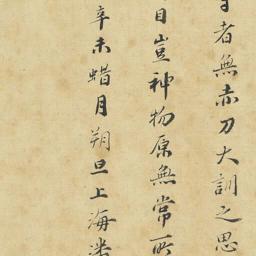 者無赤刀大訓之思
目豈神物原無常所
辛未蜡月朔旦上海潘